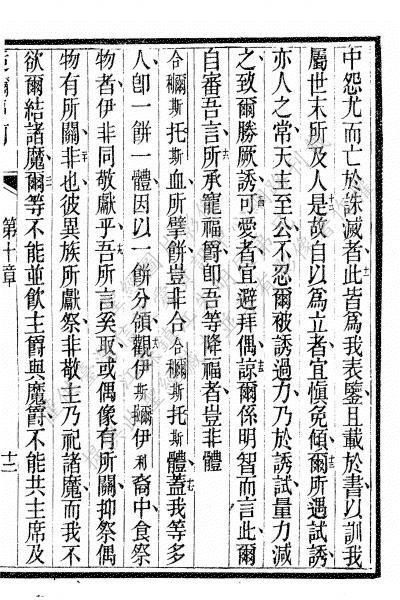 中怨尤而亡於誅滅者此皆為我表鑒且載於書以訓我
屬世末所及人是故自以為立者宜慎免傾爾所遇試誘
亦人之常天主至公不忍爾被誘過力乃於誘試量力減
之致爾勝厥誘可愛者宜避拜偶諒爾係明智而言此爾
自審吾言所承寵福爵卽吾等降福者豈非體
合穪斯托斯血所擘餅豈非合合穪斯托斯體蓋我等多
人卽一餅一體因以一餅分領觀伊斯穪伊利裔中食祭
物者伊非同敬獻乎吾所言奚取或偶像有所關抑祭偶
物有所關非也彼異族所獻祭非敬主乃祀諸魔而我不
欲爾結諸魔爾等不能並飲主爵與魔爵不能共主席及
第十章
十二